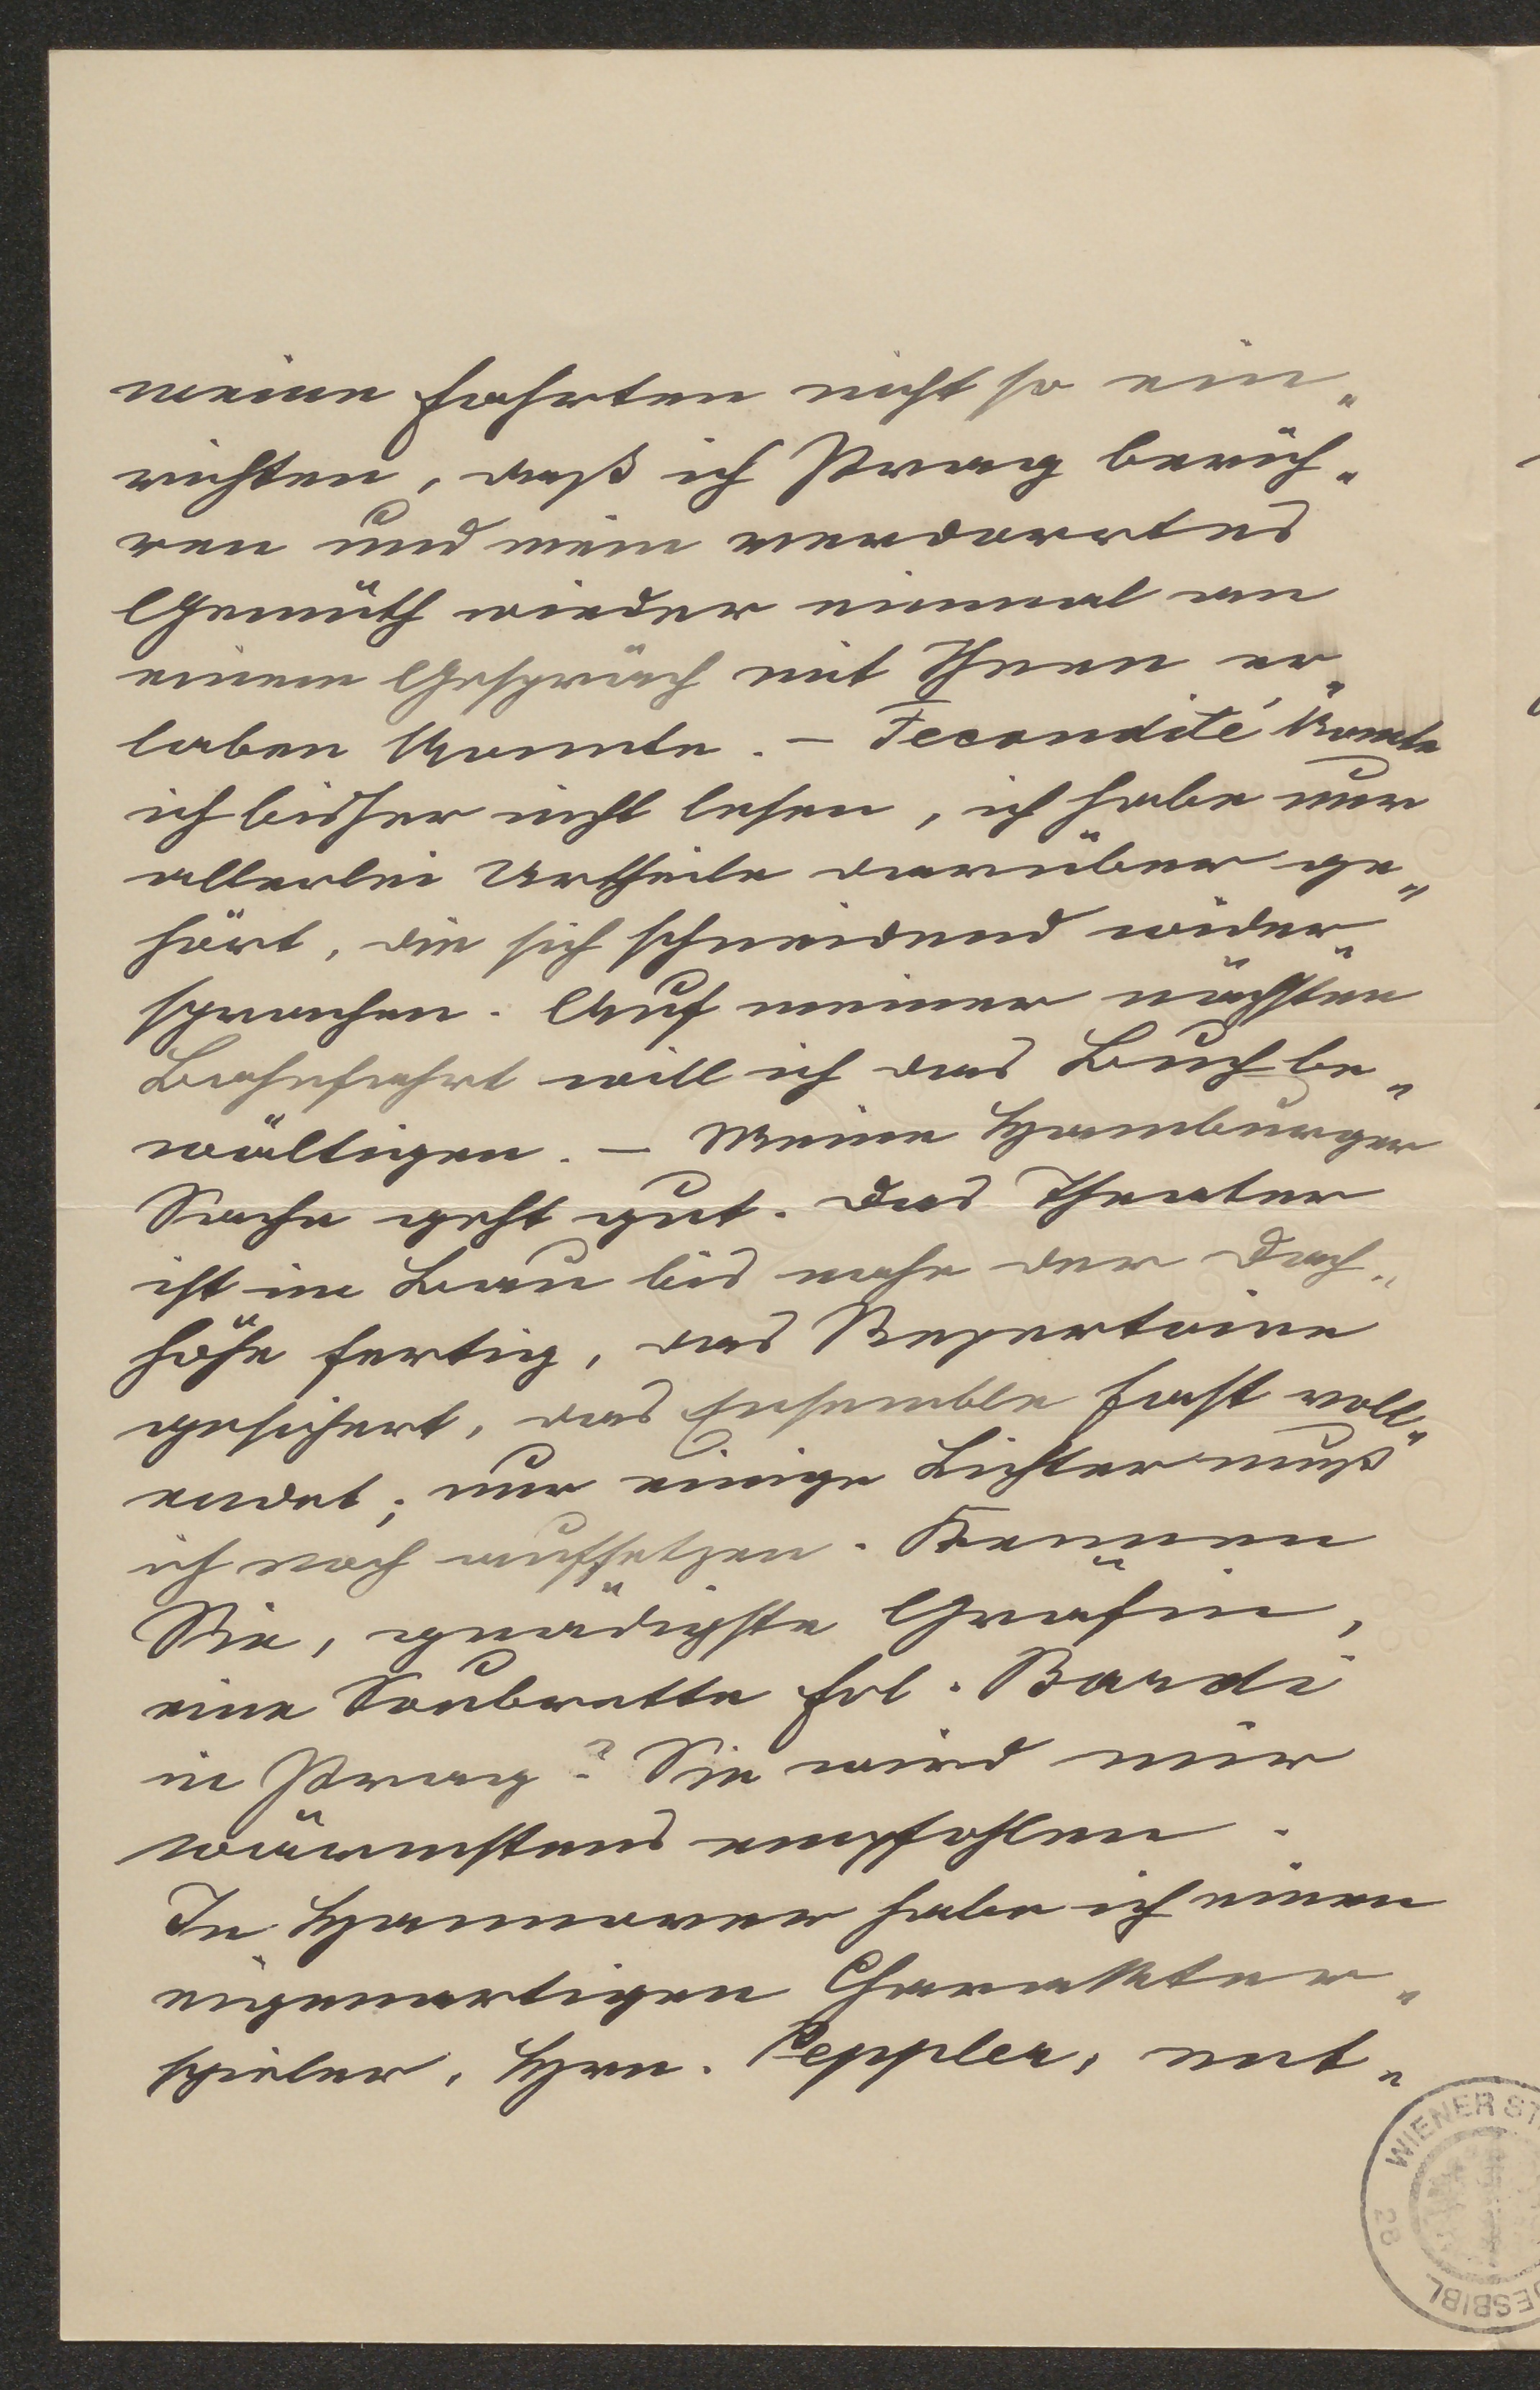 meine Fahrten nicht so ein„
richten, daß ich Prag berüh„
ren und mein verdorrtes
Gemüth wieder einmal an
einem Gespräch mit Ihnen er„
laben konnte. – Fecondité konnte
ich bisher nicht lesen, ich habe nur
allerlei Urtheile darüber ge„
hört, die sich schneidend wider„
sprachen. Auf meiner nächsten
Bahnfahrt will ich das Buch be„
wältigen. – Meine Hamburger
Sache geht gut. Das Theater
ist im Bau bis nahe der Dach„
höhe fertig, das Repertoire
gesichert, das Ensemble fast voll„
endet; nur einige Lichter muß
ich noch aufsetzen. Kennen
Sie, gnädigste Gräfin,
eine Soubrette Frl. Bardi
in Prag? Sie wird mir
wärmstens empfohlen.
In Hannover habe ich einen
eigenartigen Charakter„
spieler, Hrn. Peppler, ent„
WIENER ST
28
ESBIBL